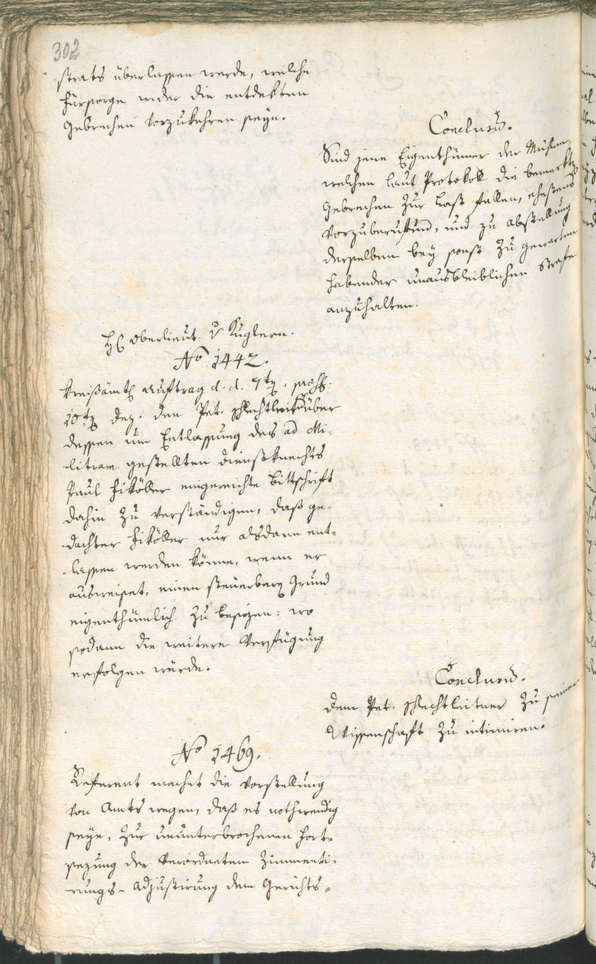 302
strats überlassen werde, welche
Fürsorge wider die entdekten
Gebrechen vorzukehren seye.
Conclusũ.
Sind jene Eigenthümer der Mühlen,
welchen laut Protokoll die bemerkte
Gebrechen zur Last fallen, ehestens
vorzuberuffend, und zu Abstellung
derselben bey sonst zu gewarten
habender unausbleiblichen Strafe
anzuhalten.
H: Oberlieut. v Kuglern.
No 1442.
Kreisämtl. Auftrag d. d. 7t. präs.
10t Dez. den Pet. Schlechtleitner über
dessen um Entlassung des ad Mi-
litiam gestellten Dienstknechts
Paul Hiköller eingereichte Bittschrift
dahin zu verständigen, daß ge-
dachter Hiköller nur alsdann ent-
lassen werden könne, wenn er
ausweiset, einen steuerbaren Grund
eigenthümlich zu besizen: wo
sodann die weitere Verfügung
erfolgen würde.
Conclusũ.
Dem Pet. Schlechtleitner zu seiner
Wissenschaft zu intimiren.
No 1469.
Referent machet die Vorstellung
von Amts wegen, daß es nothwendig
seye, zur ununterbrochenen Fort-
sezung der verordneten Zimmenti-
rungs-Adjustirung dem Gerichts-